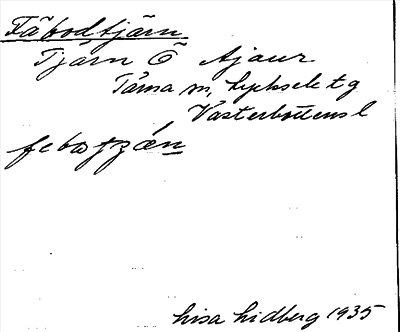 Fäbodtjärn
Tjärn Ö Ajaur
Tärna sn, Lycksele tg
Västerbottens l
Lisa Lidberg 1935